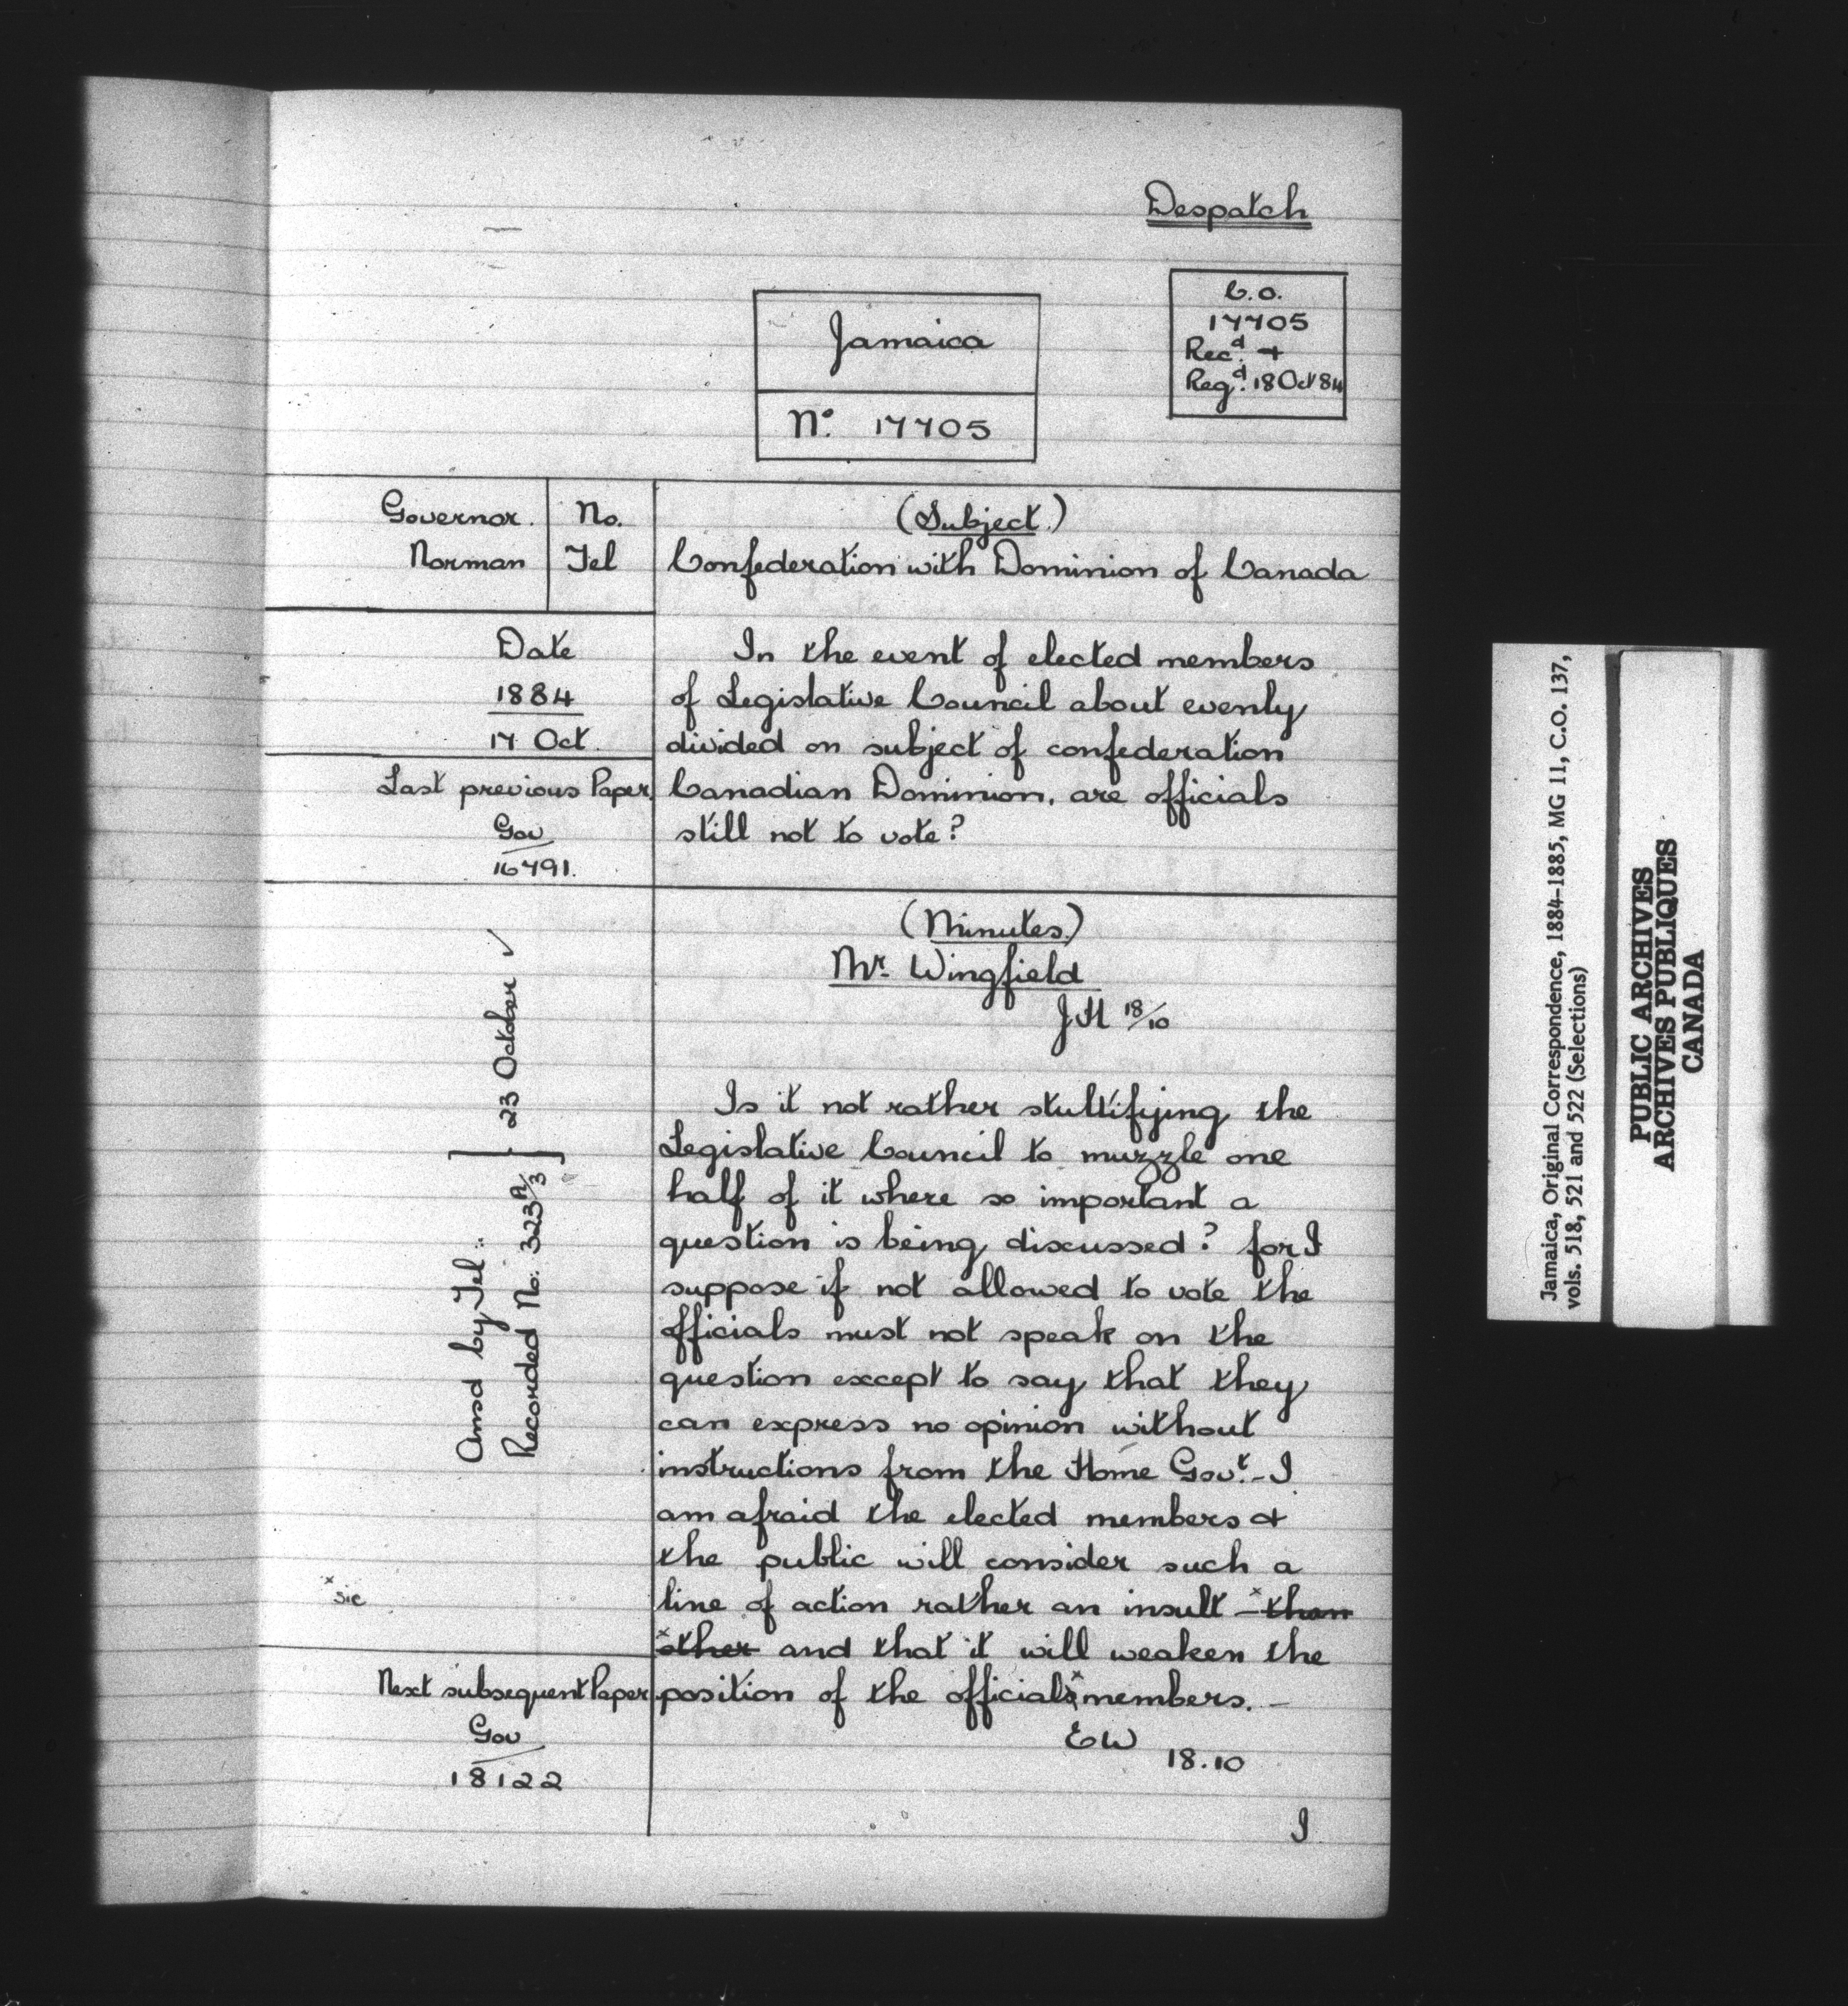 Despatch
C.O.
17705
Recd. +
Regd. 18 Oct 84
Jamaica
No. 17705
Governor.
Norman
No.
Tel
(Subject.)
Confederation with Dominion of Canada
Date
1884
17 Oct.
In the event of elected members
of Legislative Council about evenly
divided on subject of confederation
Canadian Dominion, are officials
still not to vote?
Last previous Paper.
Gov
16791.
(Minutes.)
Mr. Wingfield
JH 18/10
Ansd by Tel:
Recorded No: 323A/3 } 23 October ✓
Is it not rather stultifying the
Legislative Council to muzzle one
half of it where so important a
question is being discussed? for I
suppose if not allowed to vote the
officials must not speak on the
question except to say that they
can express no opinion without
instructions from the Home Govt. - I
am afraid the elected members +
the public will consider such a
line of action rather an insult - x than
x other and that it will weaken the
position of the officials x members. -
x sic
EW
18.10
Next subsequent Paper
Gov
18122
I
Jamaica, Original Correspondence, 1884-1885, MG 11, C.O. 137,
vols. 518, 521 and 522 (Selections)
PUBLIC ARCHIVES
ARCHIVES PUBLIQUES
CANADA